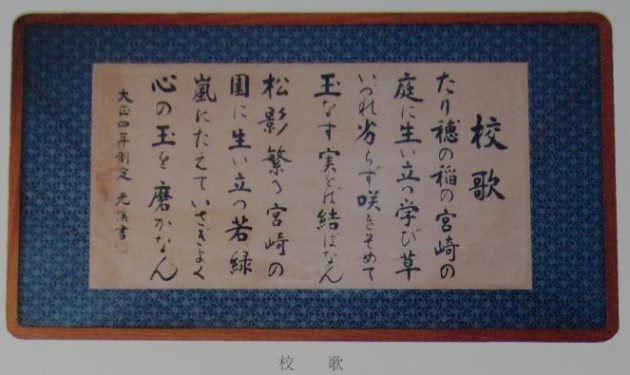 校歌
たり穂の稲の宮崎の
庭に生い立つ学び草
いづれ劣らず咲きそめて
玉なす実をば結ばなん
松影繁る宮崎の
園に生い立つ若緑
嵐にたえていさぎよく
心の玉を磨かなん
大正四年制定 光渓書
校歌